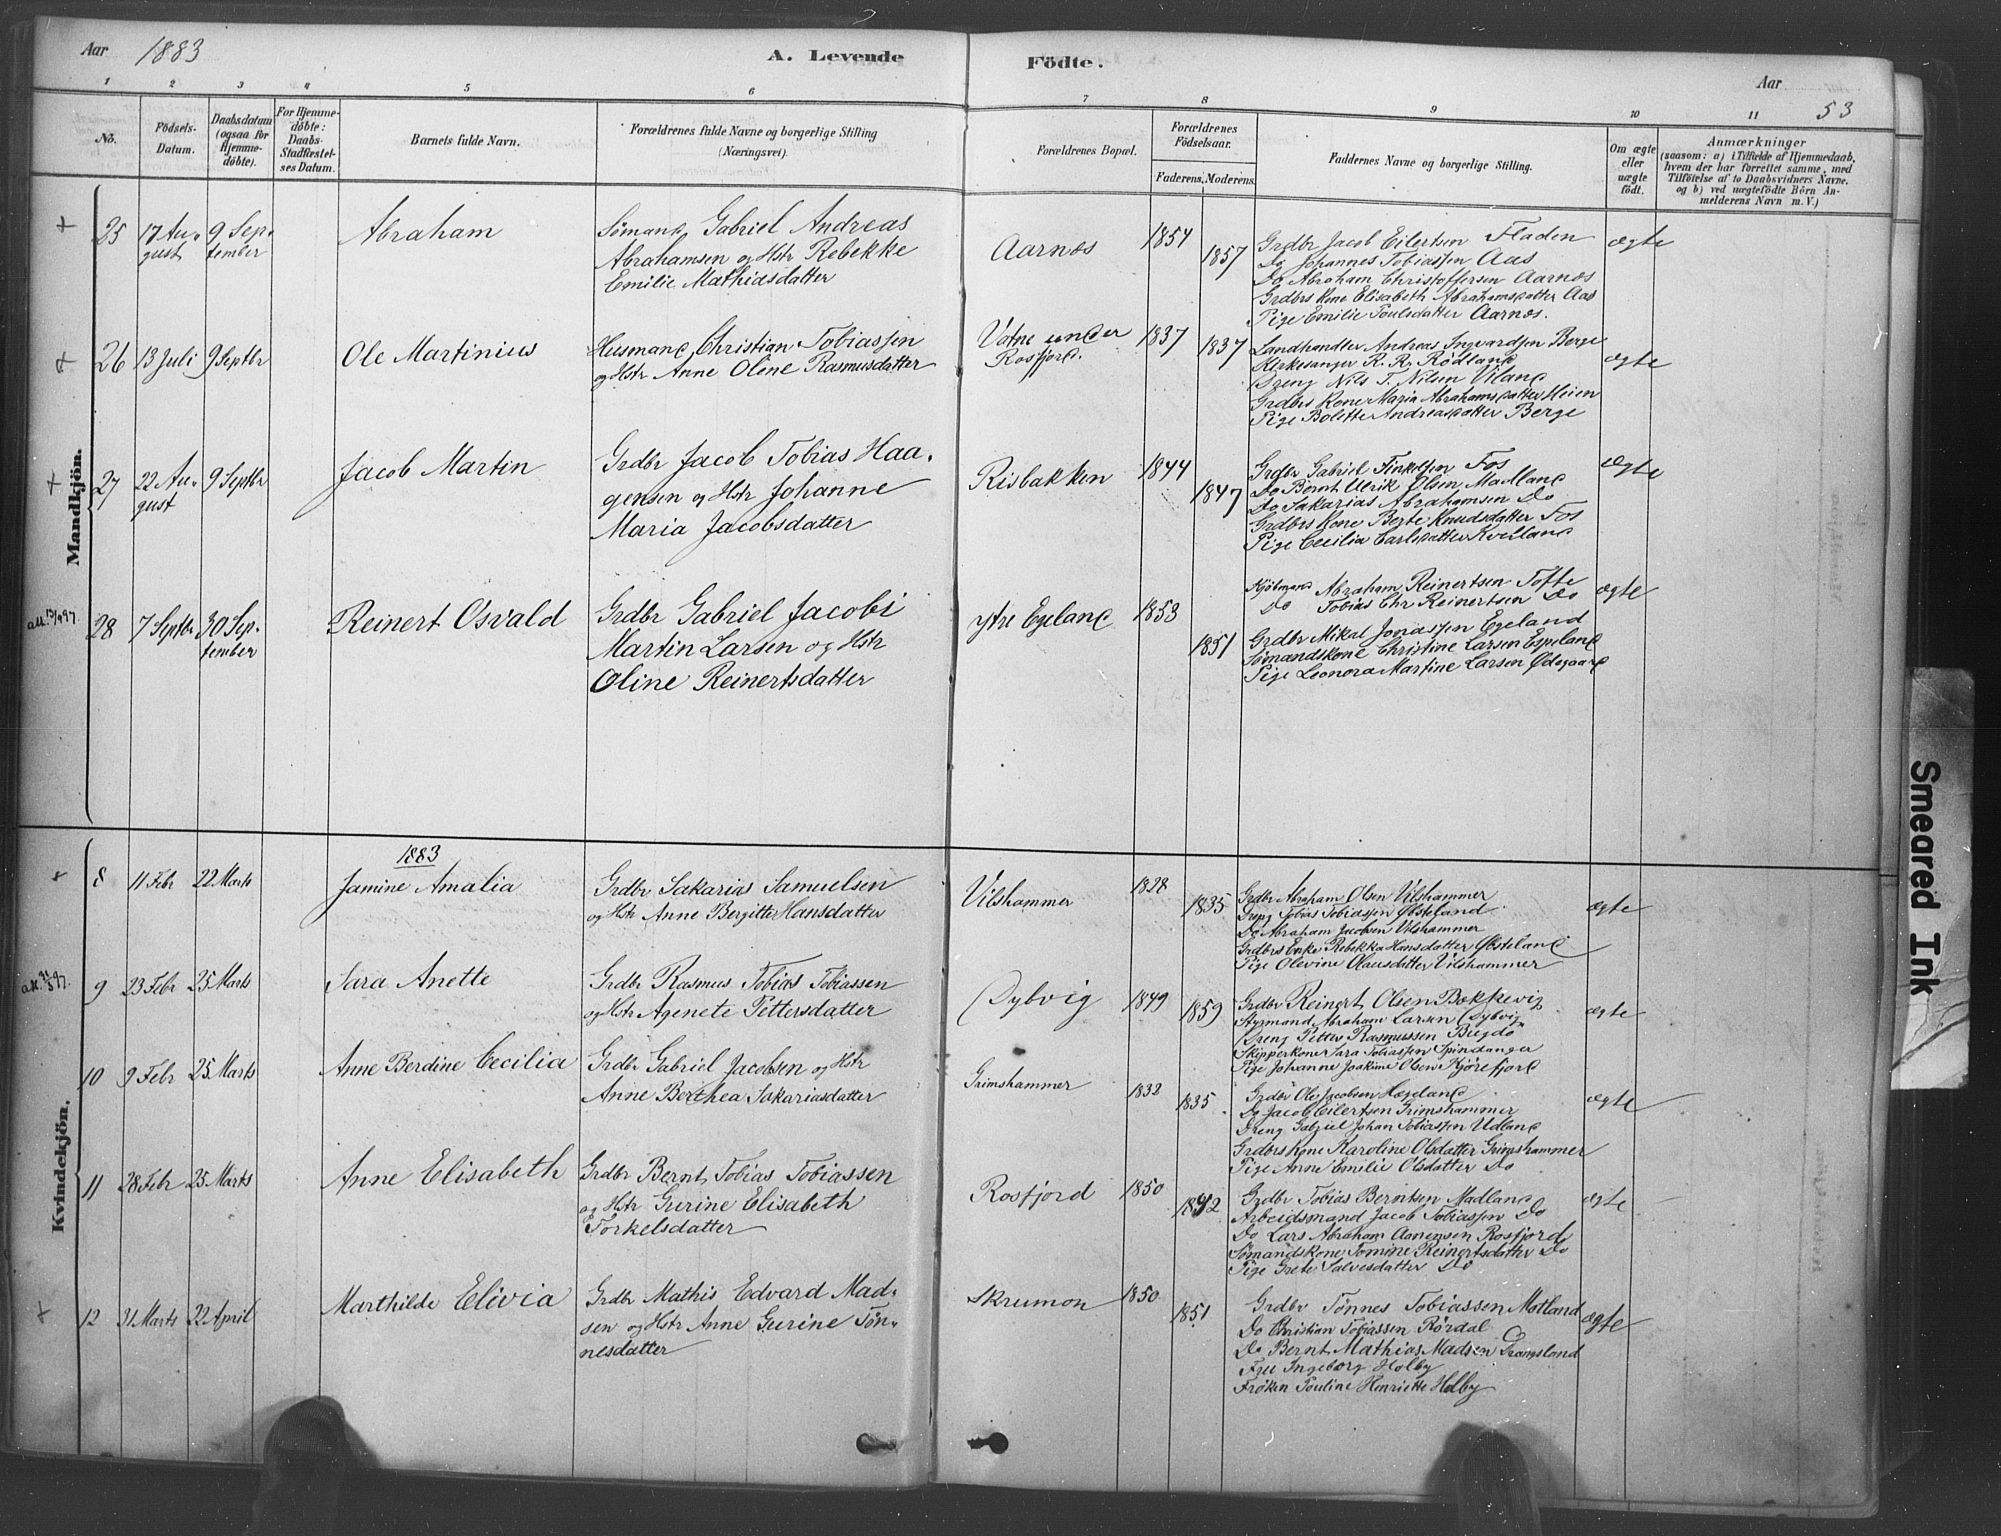 Aar 1883
A. Levende
Födte.
Aar
53
1 2 3 4 5 6 7 8 9 10 11
No.
Födsels-Datum.
Daabsdatum (ogsaa for Hjemmedöbte).
For Hjemmedöbte: Daabs-Stadfæstelses Datum.
Barnets fulde Navn.
Forældrenes fulde Navne og borgerlige Stilling (Næringsvei).
Forældrenes Bopæl.
Forældrenes Födselsaar.
Faderens. Moderens.
Faddernes Navne og borgerlige Stilling.
Om ægte eller uægte födt.
Anmærkninger
(saasom: a) i Tilfælde af Hjemmedaab, hvem der har forrettet samme, med Tilföielse af to Daabsvidners Navne. og b) ved uægtefödte Börn Anmelderens Navn m. V.)
Mandkjön.
25 17 Au-gust 9 Sep-tember
Abraham
Sømand Gabriel Andreas
Abrahamsen og Hstr Rebekke
Emilie Mathiasdatter
Aarnæs 1854 1857
Grdbr Jacob Eilertsen Fladen
Do Johannes Tobiassen Aas
Do Abraham Christoffersen Aarnæs
Grdbrs Kone Elisabeth Abrahamsdatter Aas
Pige Emilie Poulsdatter Aarnæs.
ægte
26 13 Juli 9 Septbr
Ole Martinius
Husmand Christian Tobiassen
og Hstr Anne Oline Rasmusdatter
Vatne under
Rosfjord.
1837 1837
Landhandler Andreas Ingvardsen Berge
Kirkesanger R. R. Rødland
Dreng Nils T. Nilsen Viland
Grdbrs Kone Maria Abrahamsdatter Heien
Pige Bolette Andreasdatter Berge
ægte
27 22 Au-gust 9 Septbr
Jacob Martin
Grdbr Jacob Tobias Haa-
gensen og Hstr Johanne
Maria Jacobsdatter
Risbakken 1844 1847
Grdbr Gabriel Finkelsen Fos
Do Bernt Ulrik Olsen Madland
Do Sakarias Abrahamsen Do
Grdbrs Kone Berte Knudsdatter Fos
Pige Cecilia Carlsdatter Kvelland
ægte
28 7 Septbr 30 Sep-tember
Reinert Osvald
Grdbr Gabriel Jacobi
Martin Larsen og Hstr
Oline Reinertsdatter
ytre Egeland 1853 1851
Kjøbmand Abraham Reinertsen Tofte
Do Tobias Chr Reinertsen Do
Grdbr Mikal Jonassen Egeland
Sømandskone Christine Larsen Espeland
Pige Leonora Martine Larsen Ødegaard
ægte
Kvindekjön.
1883
8 11 Febr 22 Marts
Jamine Amalia
Grdbr Sakarias Samuelsen
og Hstr Anne Bergitte Hansdatter
Vilshammer 1828 1835
Grdbr Abraham Olsen Vilshammer
Dreng Tobias Tobiassen Østeland
Do Abraham Jacobsen Vilshammer
Grdbrs Enke Rebekka Hansdatter Østeland
Pige Olevine Olausdatter Vilshammer
ægte
9 23 Febr 25 Marts
Sara Anette
Grdbr Rasmus Tobias Tobiassen
og Hstr Agenete Pettersdatter
Dybvig 1849 1859
Grdbr Reinert Olsen Bækkevig
Styrmand Abraham Larsen Dybvig
Dreng Petter Rasmussen Bugdø
Skipperkone Sara Tobiassen Spindanger
Pige Johanne Joakime Olsen Kjørefjord
ægte
10 9 Febr 25 Marts
Anne Berdine Cecilia
Grdbr Gabriel Jacobsen og Hstr
Anne Berthea Sakariasdatter
Grimshammer 1832 1835
Grdbr Ole Jacobsen Hægeland
Do Jacob Eilertsen Grimshammer
Dreng Gabriel Johan Tobiassen Udland
Grdbrs Kone Karoline Olsdatter Grimshammer
Pige Anne Emilie Olsdatter Do
ægte
11 28 Febr 25 Marts
Anne Elisabeth
Grdbr Bernt Tobias Tobiassen
og Hstr Gurine Elisabeth
Torkelsdatter
Rosfjord 1850 1842
Grdbr Tobias Berntsen Madland
Arbeidsmand Jacob Tobiassen Do
Do Lars Abraham Aanensen Rosfjord
Sømandskone Tomine Reinertsdatter Do
Pige Grete Salvesdatter Do
ægte
12 31 Marts 22 April
Marthilde Elivia
Grdbr Mathis Edvard Mad-
sen og Hstr Anne Gurine Tøn-
nesdatter
Skrumon 1850 1851
Grdbr Tønnes Tobiassen Motland
Do Christian Tobiassen Rørdal
Do Bernt Mathias Madsen Drangsland
Frue Ingeborg Holby
Frøken Pouline Henriette Holby
ægte
Smeared Ink